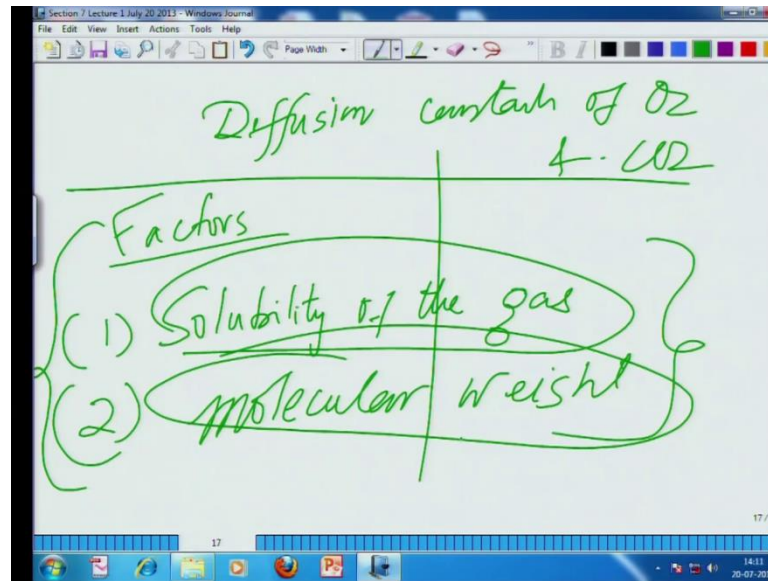 Section 7 Lecture 1 July 20 2013 - Windows Journal
File Edit View Insert Actions Tools Help
Page Width
B I
Diffusion constants of O2
& CO2
Factors
(1) Solubility of the gas
(2) molecular weight
17 /
17
14:11
20-07-201